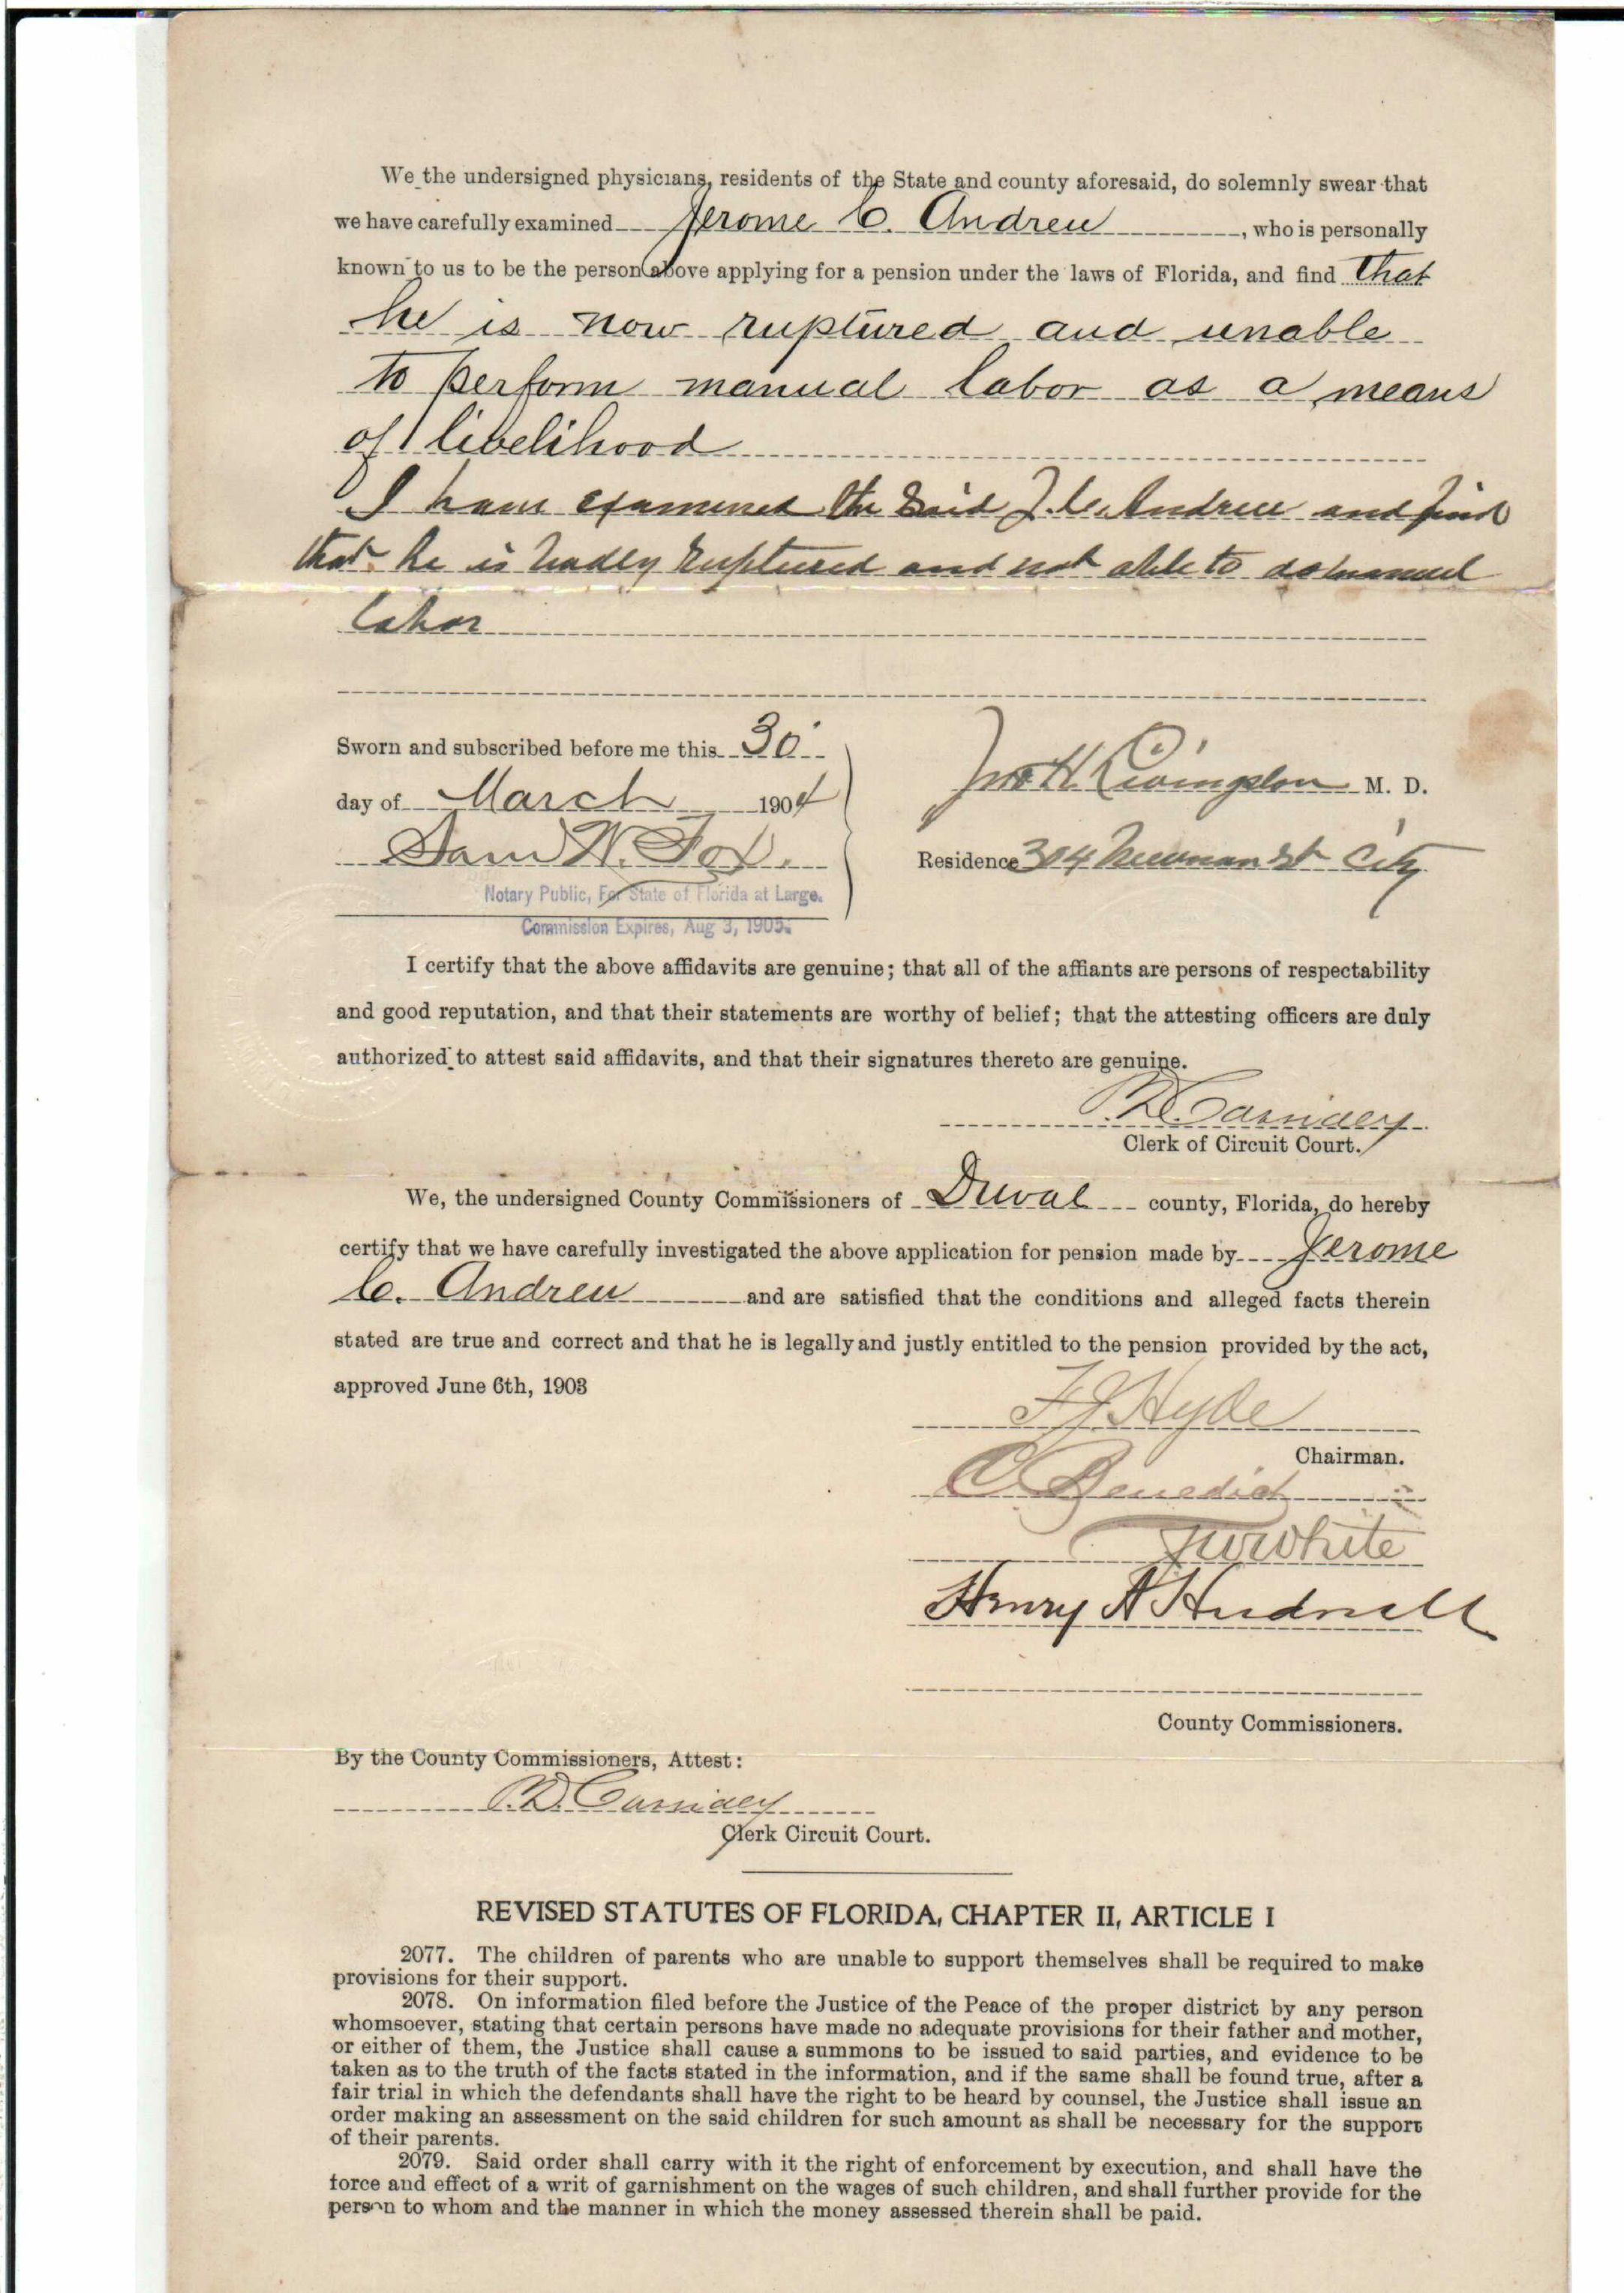 We the undersigned physicians, residents of the State and county aforesaid, do solemnly swear that
we have carefully examined Jerome C. Andreu, who is personally
known to us to be the person above applying for a pension under the laws of Florida, and find that
he is now ruptured and unable
to perform manual labor as a means
of livelihood
I have examined the said J. C. Andreu and find
that he is badly ruptured and not able to do manual
labor
Sworn and subscribed before me this 30
day of March 1904
Sam W. Fox.
Notary Public, For State of Florida at Large.
Commission Expires, Aug 3, 1905.
Jno H. Livingston M. D.
Residence 304 Newnan St City
I certify that the above affidavits are genuine; that all of the affiants are persons of respectability
and good reputation, and that their statements are worthy of belief; that the attesting officers are duly
authorized to attest said affidavits, and that their signatures thereto are genuine.
P. D. Cassidey
Clerk of Circuit Court.
We, the undersigned County Commissioners of Duval county, Florida, do hereby
certify that we have carefully investigated the above application for pension made by Jerome
C. Andreu and are satisfied that the conditions and alleged facts therein
stated are true and correct and that he is legally and justly entitled to the pension provided by the act,
approved June 6th, 1903
F J Hyde
Chairman.
C Benedict
White
Henry A Hudnall
County Commissioners.
By the County Commissioners, Attest:
P. D. Cassidey
Clerk Circuit Court.
REVISED STATUTES OF FLORIDA, CHAPTER II, ARTICLE I
2077. The children of parents who are unable to support themselves shall be required to make
provisions for their support.
2078. On information filed before the Justice of the Peace of the proper district by any person
whomsoever, stating that certain persons have made no adequate provisions for their father and mother,
or either of them, the Justice shall cause a summons to be issued to said parties, and evidence to be
taken as to the truth of the facts stated in the information, and if the same shall be found true, after a
fair trial in which the defendants shall have the right to be heard by counsel, the Justice shall issue an
order making an assessment on the said children for such amount as shall be necessary for the support
of their parents.
2079. Said order shall carry with it the right of enforcement by execution, and shall have the
force and effect of a writ of garnishment on the wages of such children, and shall further provide for the
person to whom and the manner in which the money assessed therein shall be paid.